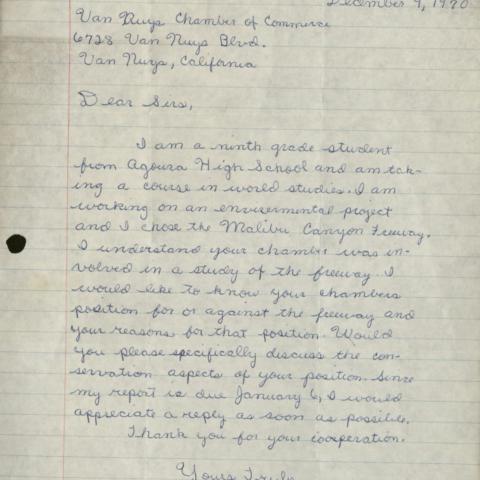 December 9, 1970
Van Nuys Chamber of Commerce
6728 Van Nuys Blvd.
Van Nuys, California
Dear Sirs,
I am a ninth grade student
from Agoura High School and am tak-
ing a course in world studies. I am
working on an envirermental project
and I chose the Malibu Canyon Freeway.
I understand your chamber was in-
volved in a study of the freeway. I
would like to know your chambers
position for or against the freeway and
your reasons for that position. Would
you please specifically discuss the con-
servation aspects of your position. Since
my report is due January 6, I would
appreciate a reply as soon as possible.
Thank you for your cooperation.
Yours Truly